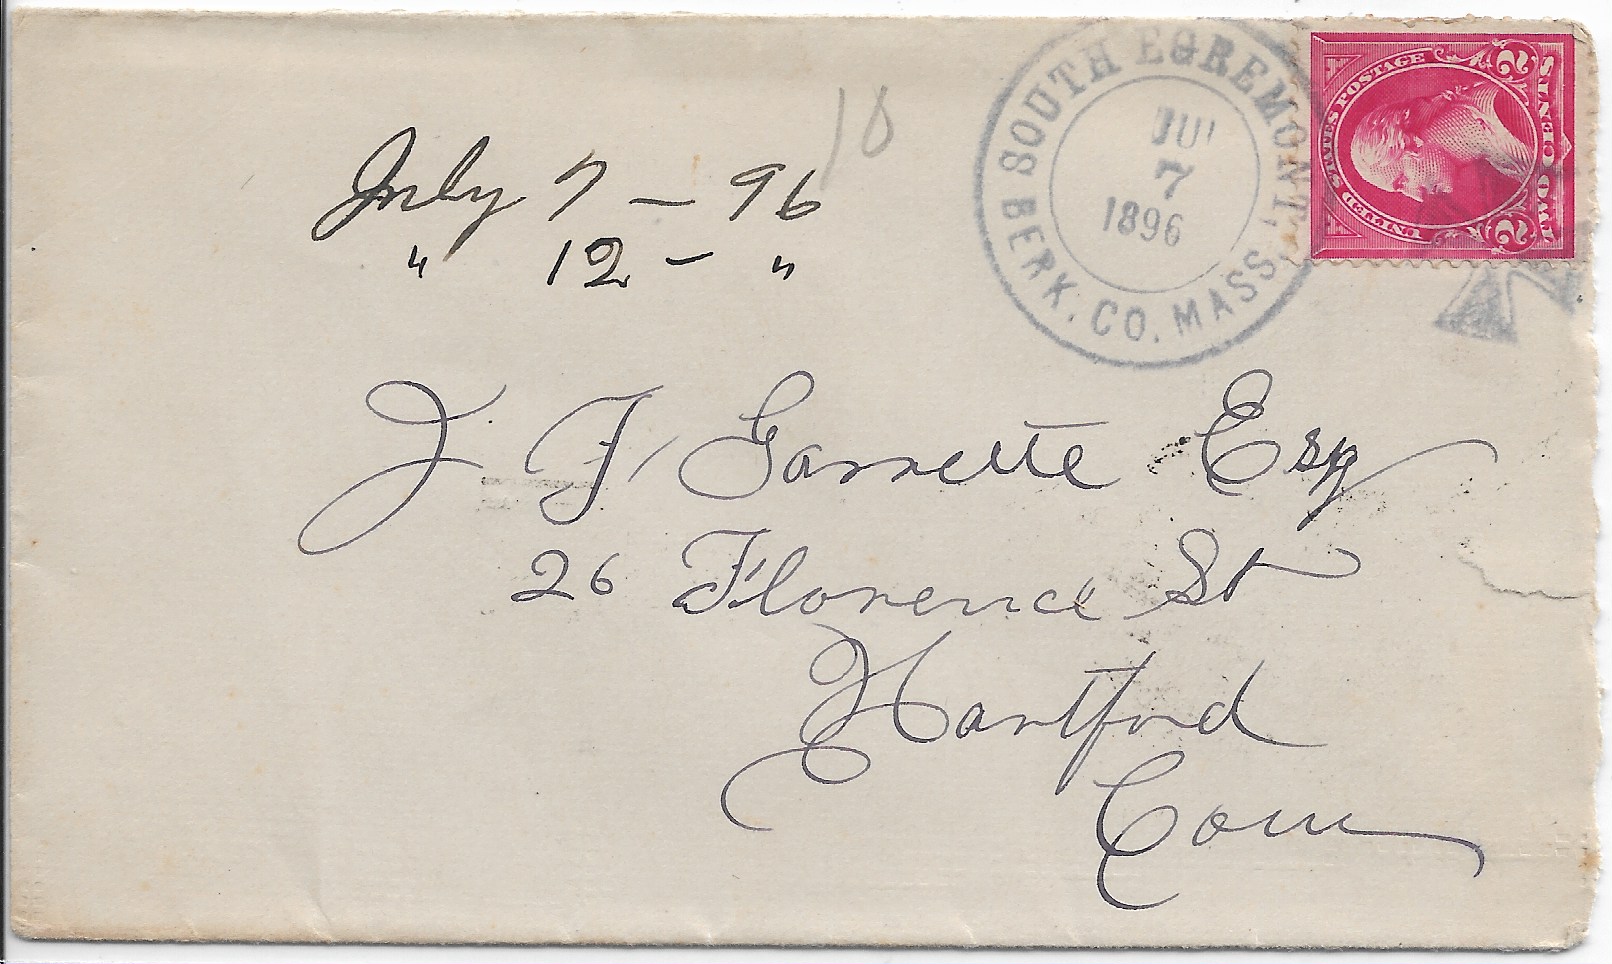 10
July 7 - 96
" 12 - "
SOUTH EGREMONT,
JUL
7
1896
BERK. CO. MASS.
UNITED STATES POSTAGE
2 2
TWO CENTS
J. F. Garrette Esq
26 Florence St
Hartford
Conn